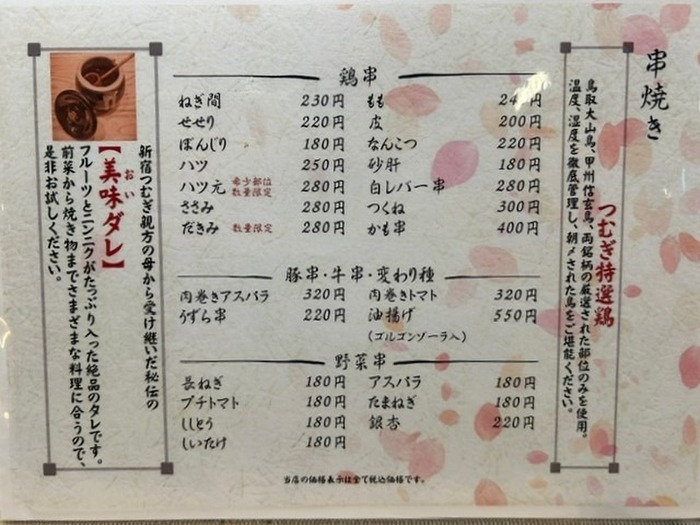 串焼き
つむぎ特選鶏
鳥取大山鳥、甲州信玄鳥、両銘柄の厳選された部位のみを使用。
温度、湿度を徹底管理し、朝〆された鳥をご堪能ください。
鶏串
ねぎ間 230円
せせり 220円
ぼんじり 180円
ハツ 250円
ハツ元 希少部位 数量限定 280円
ささみ 280円
だきみ 数量限定 280円
もも
皮 200円
なんこつ 220円
砂肝 180円
白レバー串 280円
つくね 300円
かも串 400円
豚串・牛串・変わり種
肉巻きアスパラ 320円
うずら串 220円
肉巻きトマト 320円
油揚げ 550円
(ゴルゴンゾーラ入)
野菜串
長ねぎ 180円
プチトマト 180円
ししとう 180円
しいたけ 180円
アスパラ 180円
たまねぎ 180円
銀杏 220円
当店の価格表示は全て税込価格です。
新宿つむぎ親方の母から受け継いだ秘伝の
【美味ダレ】
おい
フルーツとニンニクがたっぷり入った絶品のタレです。
前菜から焼き物までさまざまな料理に合うので、
是非お試しください。